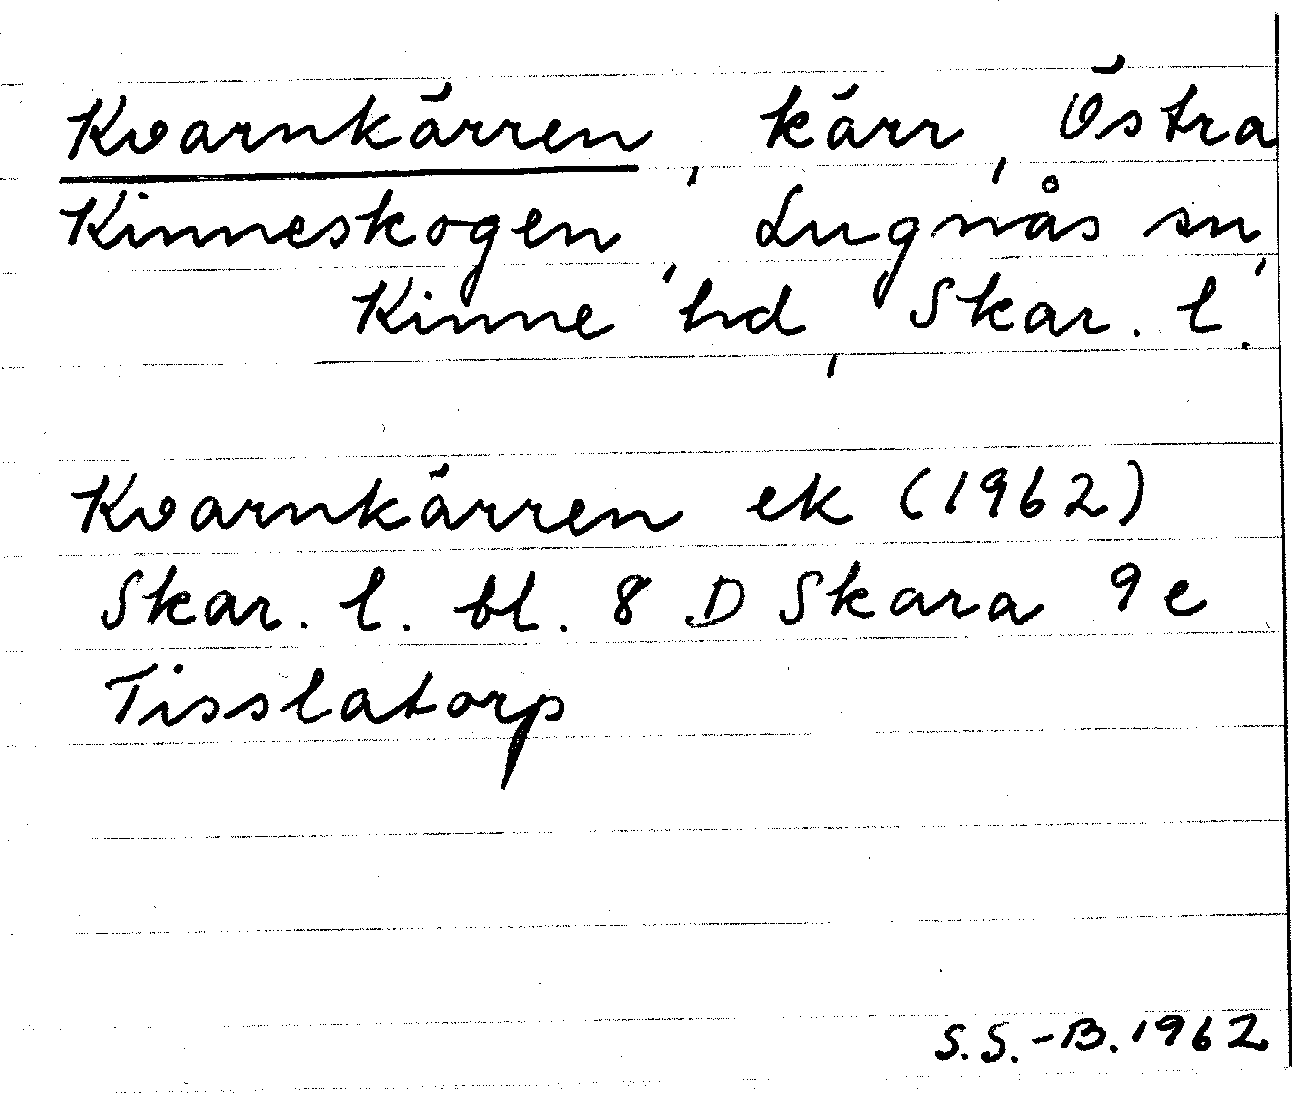 Kvarnkärren, kärr, Östra
Kinneskogen, Lugnås sn,
Kinne hd, Skar. l.
Kvarnkärren ek (1962)
Skar. l. bl. 8 D Skara 9 e
Tisslatorp
S.S.-B. 1962